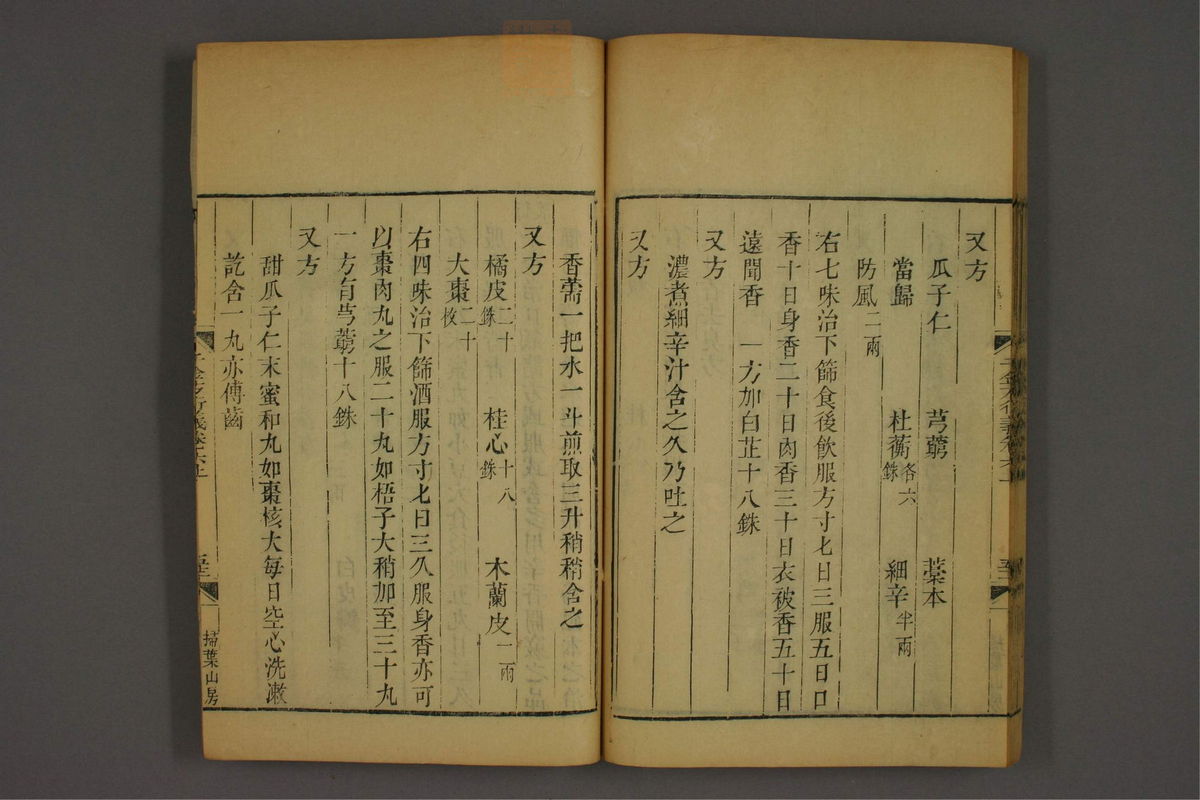 又方
瓜子仁 芎藭 藁本
當歸 杜蘅各六銖 細辛半兩
防風二兩
右七味治下篩食後飲服方寸匕日三服五日口
香十日身香二十日肉香三十日衣被香五十日
遠聞香 一方加白芷十八銖
又方
濃煮細辛汁含之久乃吐之
又方
香薷一把水一斗煎取三升稍稍含之
又方
橘皮二十銖 桂心十八銖 木蘭皮一兩
大棗二十枚
右四味治下篩酒服方寸匕日三久服身香亦可
以棗肉丸之服二十丸如梧子大稍加至三十丸
一方有芎藭十八銖
又方
甜瓜子仁末蜜和丸如棗核大每日空心洗漱
訖含一丸亦傅齒
千金方衍義卷六上
掃葉山房